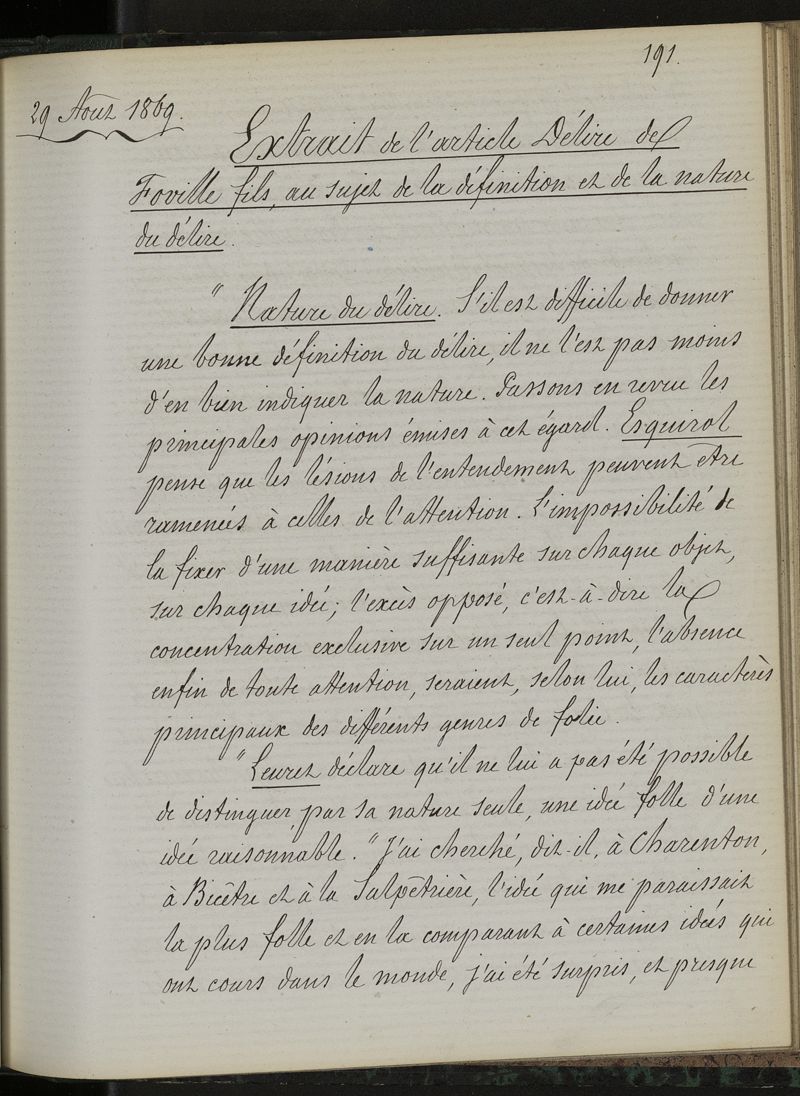 191.
29 Aout 1869.
Extrait de l'article Délire de
Foville fils, au sujet de la définition et de la nature
du délire.
" Nature du délire. S'il est difficile de donner
une bonne définition du délire, il ne l'est pas moins
d'en bien indiquer la nature. Passons en revue les
principales opinions émises à cet égard. Esquirol
pense que les lésions de l'entendement peuvent être
ramenées à celles de l'attention. L'impossibilité de
la fixer d'une manière suffisante sur chaque objet,
sur chaque idée; l'excès opposé, c'est-à-dire la
concentration exclusive sur un seul point, l'absence
enfin de toute attention, seraient, selon lui, les caractères
principaux des différents genres de folie.
" Leuret déclare qu'il ne lui a pas été possible
de distinguer, par sa nature seule, une idée folle d'une
idée raisonnable. " J'ai cherché, dit-il, à Charenton,
à Bicêtre et à la Salpêtrière, l'idée qui me paraissait
la plus folle et en la comparant à certaines idées qui
ont cours dans le monde, j'ai été surpris, et presque